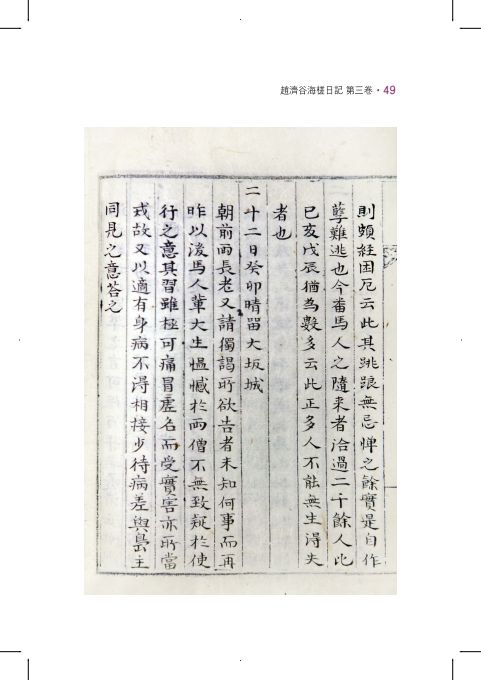 趙濟谷海槎日記 第三卷 · 49
則頗経困厄云此其跳踉無忌惮之餘實是自作
孽難逃也今番馬人之隨来者洽過二千餘人比
已亥戊辰猶為數多云此正多人不能無生淂失
者也
二十二日癸卯晴畱大坂城
朝前両長老又請獨謁所欲告者未知何事而再
昨以後馬人輩大生愠憾於両僧不無致疑於使
行之意其習雖極可痛冒虛名而受實害亦所當
戎故又以適有身病不淂相接少待病差與島主
同見之意荅之